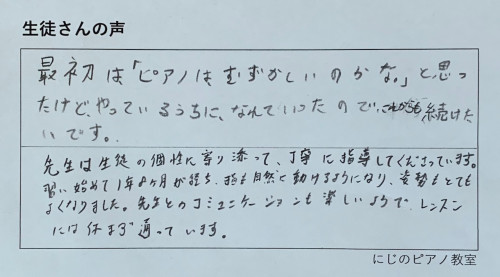 生徒さんの声
最初は「ピアノはむずかしいのかな。」と思っ
たけど、やっているうちに、なれていったので、これからも続けた
いです。
先生は生徒の個性に寄り添って、丁寧に指導してくださっています。
習い始めて1年8ヶ月が経ち、指も自然と動けるようになり、姿勢もとても
よくなりました。先生とのコミュニケーションも楽しいようで、レッスン
には休まず通っています。
にじのピアノ教室